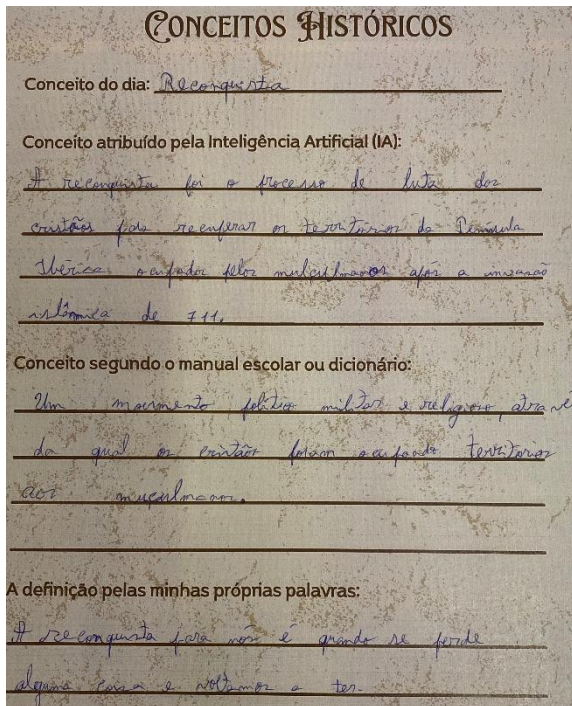 CONCEITOS HISTÓRICOS
Conceito do dia: Reconquista
Conceito atribuído pela Inteligência Artificial (IA):
A reconquista foi o processo de luta dos
cristãos para recuperar os territórios da Península
Ibérica ocupados pelos muçulmanos após a invasão
islâmica de 711.
Conceito segundo o manual escolar ou dicionário:
Um movimento político militar e religioso, atravé
do qual os cristãos foram ocupando territórios
aos muçulmanos.
A definição pelas minhas próprias palavras:
A reconquista para nós é quando se perde
alguma coisa e voltamos a ter.